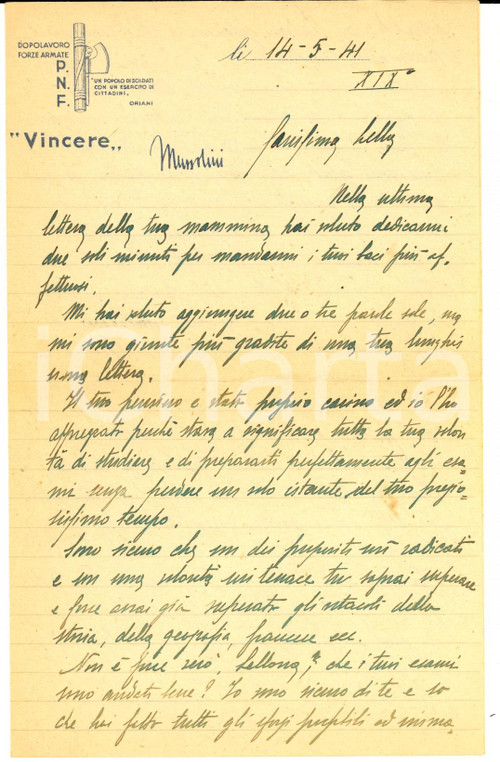 DOPOLAVORO
FORZE ARMATE
P.
N.
F.
"UN POPOLO DI SOLDATI
CON UN ESERCITO DI
CITTADINI„
ORIANI
"Vincere„
Mussolini
lì 14-5-41
XIX°
Carissima Lella
Nella ultima
lettera della tua mammina hai voluto dedicarmi
due soli minuti per mandarmi i tuoi baci più af-
fettuosi.
Mi hai voluto aggiungere due o tre parole sole, ma
mi sono giunte più gradite di una tua lunghis
sima lettera.
Il tuo pensiero è stato proprio carino ed io l'ho
apprezzato perchè stava a significare tutta la tua volon
tà di studiare e di prepararti perfettamente agli esa-
mi senza perdere un solo istante del tuo prezio-
sissimo tempo.
Sono sicuro che con dei propositi così radicati
e con una volontà così tenace tu saprai superare
e forse avrai già superato gli ostacoli della
storia, della geografia, francese ecc.
Non è forse vero, Lellona, che i tuoi esami
sono andati bene? Io sono sicuro di te e so
che hai fatto tutti gli sforzi possibili ed
iCharta